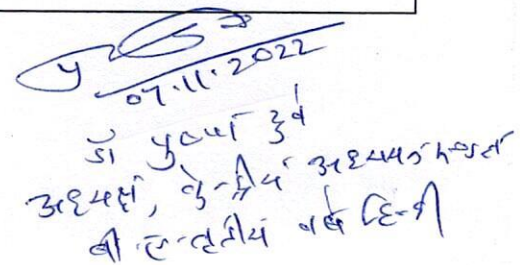 07.11.2022
डॉ पुष्पा दुबे
अध्यक्ष, केन्द्रीय अध्ययन मण्डल
बी.ए. तृतीय वर्ष हिन्दी